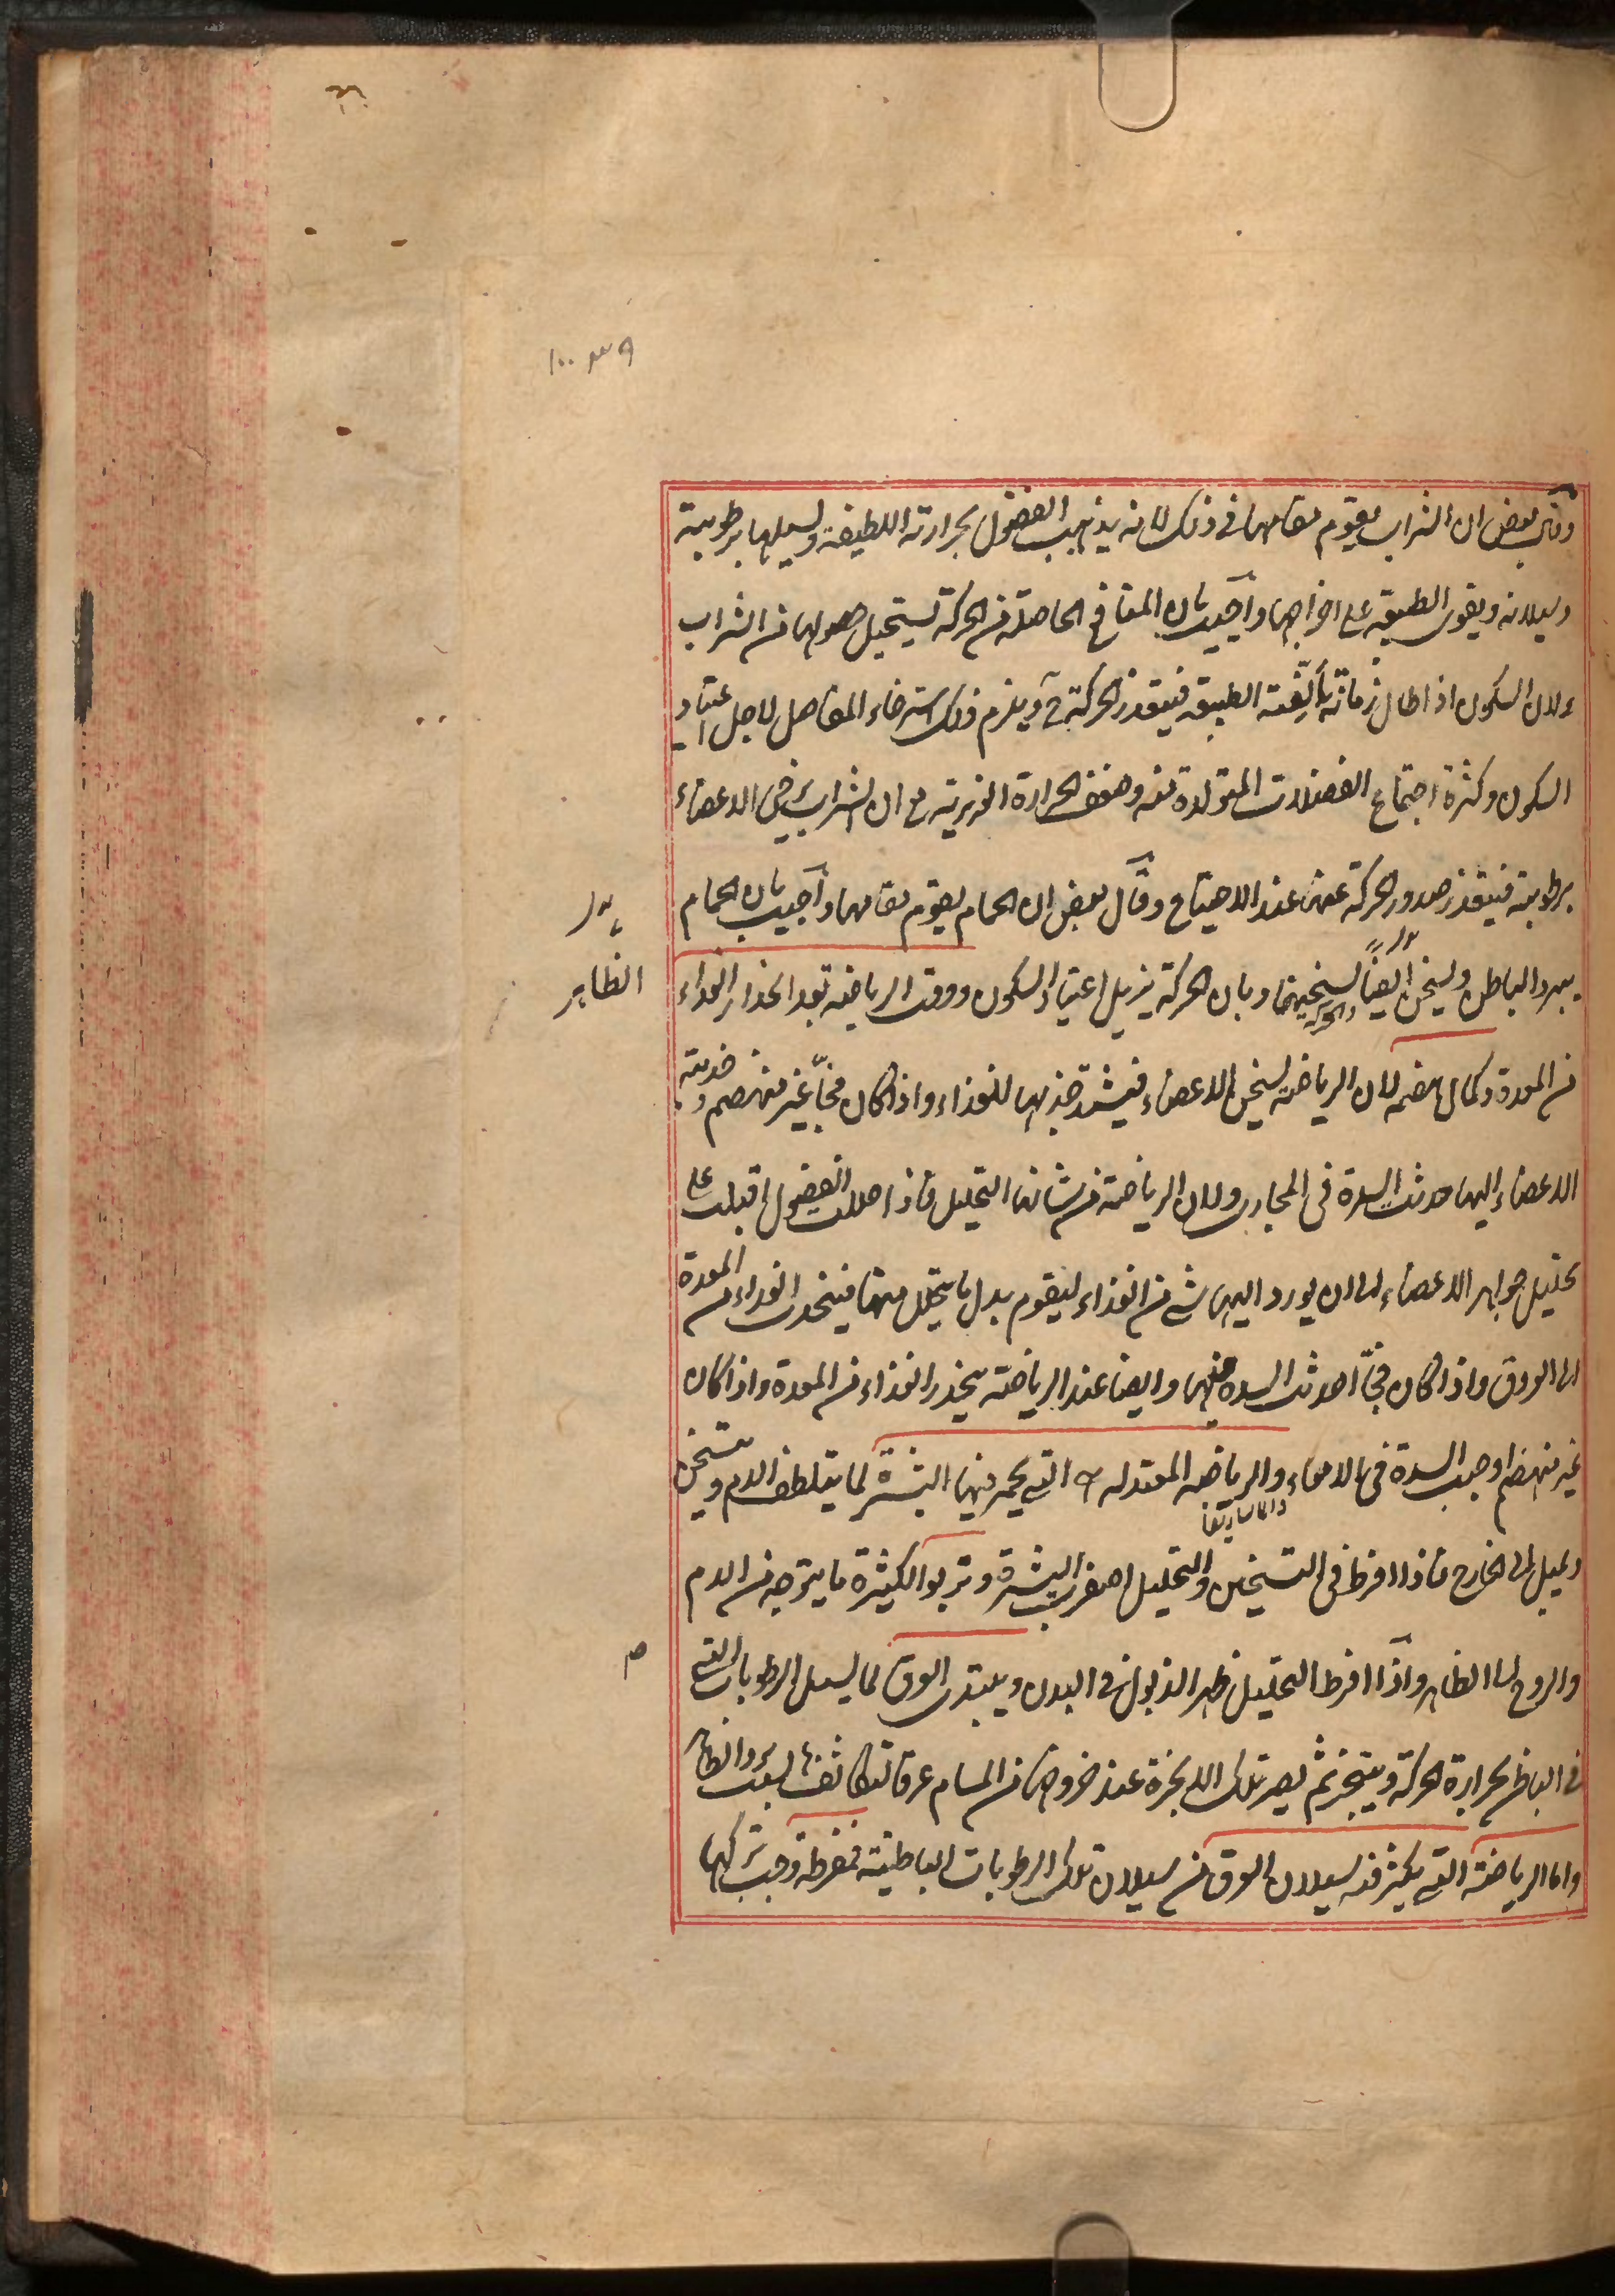 وقال بعض ان الشراب يقوم مقامها فى ذلك لانه يذهب الفضول بحرارته اللطيفة ويسيلها برطوبته
وسيلانه ويقوى الطبيعة على اخراجها واجيب بان المنافع الحاصلة من الحركة يستحيل حصولها من الشراب
ولان السكون اذا طال زمانه يألفته الطبيعة فيتعذر الحركة ويلزم ذلك استرخاء المفاصل لاجل اعتياد
السكون وكثرة اجتماع الفضلات المتولدة منه وضعف الحرارة الغريزية مع ان الشراب يرخى الاعضاء
برطوبته فيتعذر صدور الحركة عنها عند الاحتياج وقال بعض ان الحمام يقوم مقامها واجيب بان الحمام
يبرد الباطن ويسخن ايضا تسخينها وبان الحركة يزيل اعتياد السكون ووقت الرياضة بعد انحدار الغذاء
والحركة
الظاهر
من المعدة وكمال هضمه لان الرياضة يسخن الاعضاء فيشتد جذبها للغذاء واذا كان فجّا غير منهضم وجذبته
الاعضاء اليها حدثت السدة فى المجارى ولان الرياضة من شانها التحليل فاذا حللت الفضول اقبلت على
تحليل جواهر الاعضاء الى ان يورد اليها شئ من الغذاء ليقوم بدل ما يتحلل منها فينحدر الغذاء من المعدة
الى العروق واذا كان فجّا احدث السدة فيها وايضا عند الرياضة ينحدر الغذاء من المعدة واذا كان
غير منهضم اوجب السدة فى الامعاء والرياضة المعتدلة هى التى يحمر فيها البشرة لما يتلطف الدم ويتسخن
والماساريقا
ويميل الى الخارج فاذا افرط فى التسخين والتحليل اصفرت البشرة وتربو الكثيرة ما يتوجه من الدم
والروح الى الظاهر واذا افرط التحليل ظهر الذبول فى البدن ويبتدى العرق لما يسيل الرطوبات التى
فى الباطن بحرارة الحركة ويتبخر ثم يصير تلك الابخرة عند خروجها من المسام عرقا لتكاثفها بسبب برد الظاهر
واما الرياضة التى يكثر فيه سيلان العرق من سيلان تلك الرطوبات الباطنة فمفرطة وجب تركها